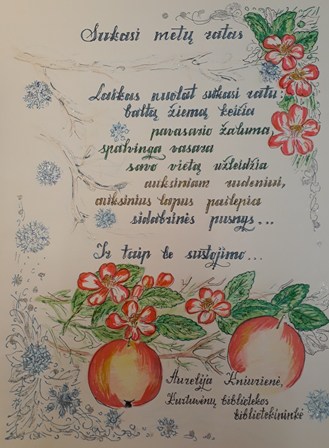 Sukasi metų ratas
Laikas nuolat sukasi ratu:
baltą žiemą keičia
pavasario žaluma,
spalvinga vasara
savo vietą užleidžia
auksiniam rudeniui,
auksinius lapus paslepia
sidabrinės pusnys...
Ir taip be sustojimo...
Aurelija Kniurienė,
Kurtuvėnų bibliotekos
bibliotekininkė